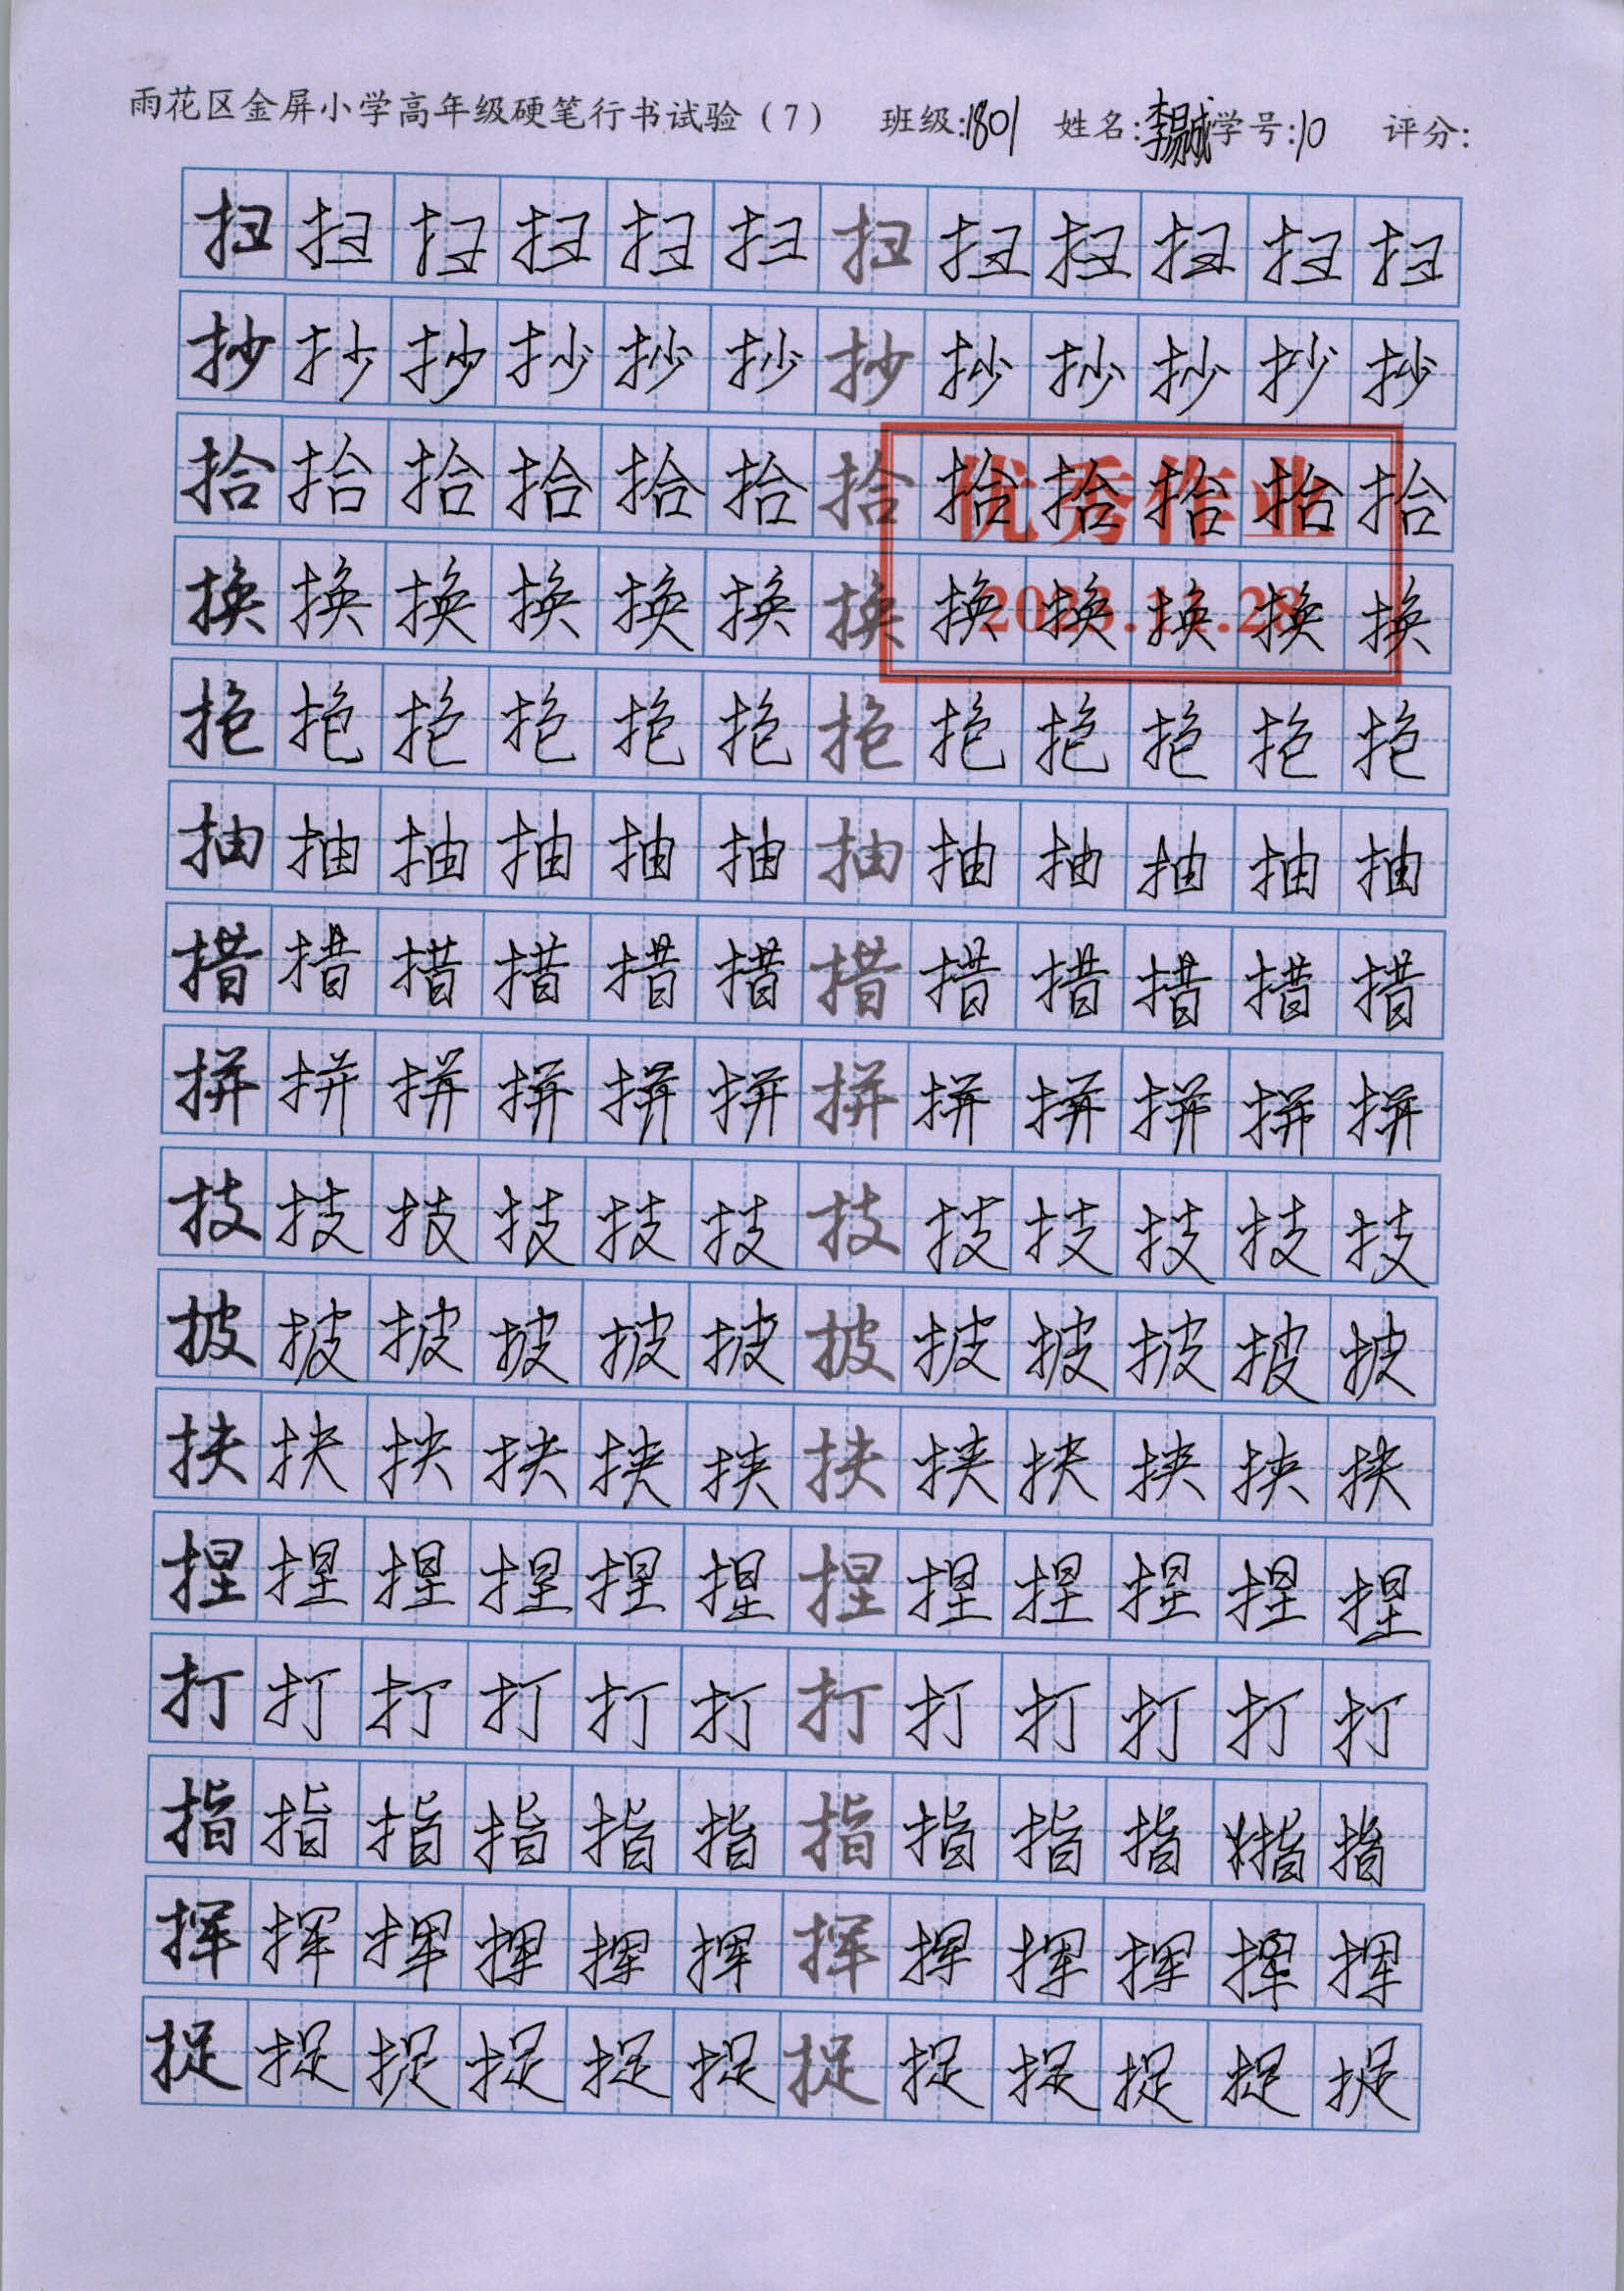 雨花区金屏小学高年级硬笔行书试验（7） 班级:1801 姓名:李易诚 学号:10 评分:
扫扫扫扫扫扫扫扫扫扫扫扫
抄抄抄抄抄抄抄抄抄抄抄抄
拾拾拾拾拾拾拾拾拾拾拾拾
优秀作业
换换换换换换换换换换换换
2023.11.28
抱抱抱抱抱抱抱抱抱抱抱抱
抽抽抽抽抽抽抽抽抽抽抽抽
措措措措措措措措措措措措
拼拼拼拼拼拼拼拼拼拼拼拼
技技技技技技技技技技技技
披披披披披披披披披披披披
挟挟挟挟挟挟挟挟挟挟挟挟
捏捏捏捏捏捏捏捏捏捏捏捏
打打打打打打打打打打打打
指指指指指指指指指指指指
挥挥挥挥挥挥挥挥挥挥挥挥
捉捉捉捉捉捉捉捉捉捉捉捉